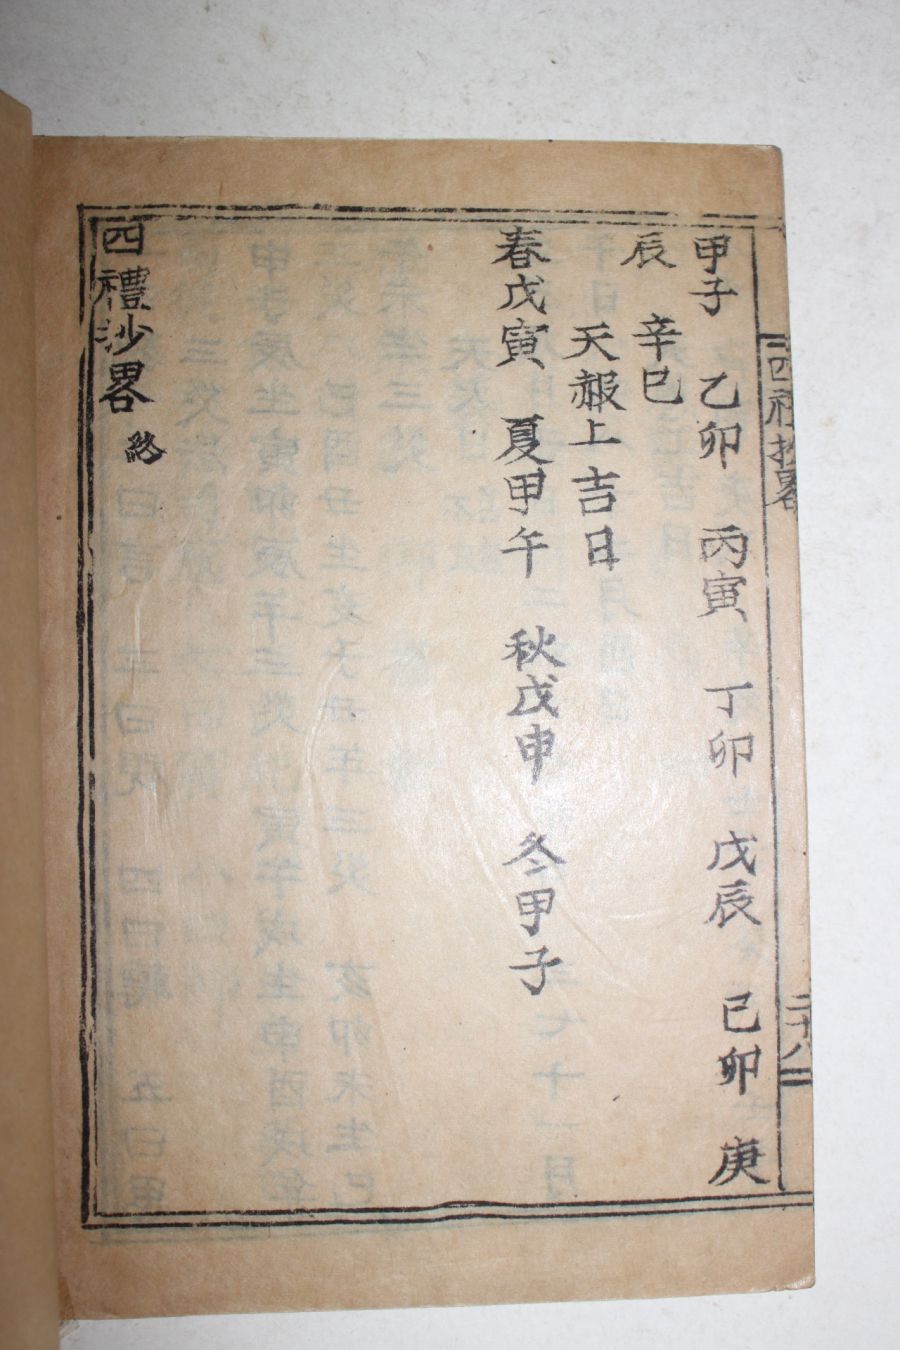 甲子　乙卯　丙寅　丁卯　戊辰　己卯　庚
辰　辛巳
天赧上吉日
春戊寅　夏甲午　秋戊申　冬甲子
四禮沙畧 終
四礼抄畧
二十八